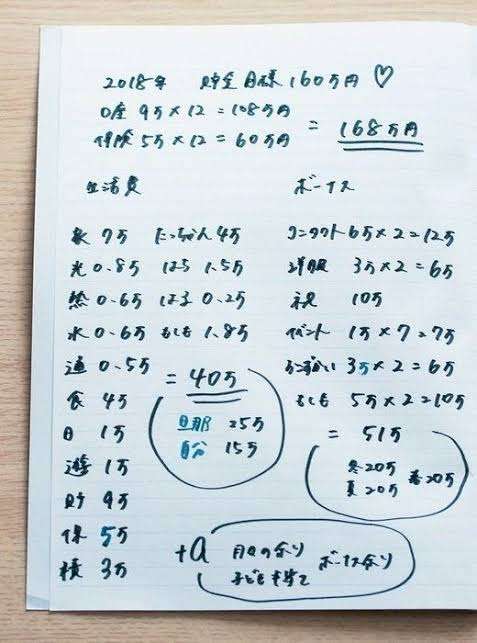 2018年 貯金目標160万円♡
口座 9万×12=108万円
保険 5万×12=60万円
=168万円
生活費
家 7万
光 0.8万
熱 0.6万
水 0.6万
通 0.5万
食 4万
日 1万
遊 1万
貯 9万
保 5万
積 3万
たっちゃん 4万
はら 1.5万
はる 0.2万
もしも 1.8万
=40万
旦那 25万
自分 15万
ボーナス
コンタクト 6万×2=12万
洋服 3万×2=6万
祝 10万
イベント 1万×7=7万
3万×2=6万
もしも 5万×2=10万
=51万
冬20万
夏20万
春20万
+α
月々の余り
子ども手当て
ボーナス余り